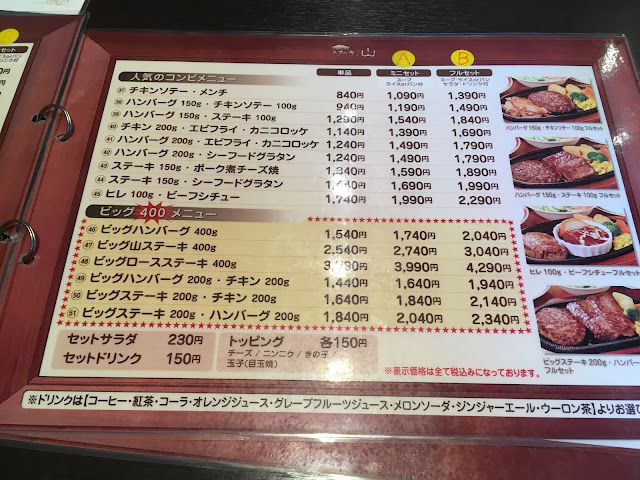 ステーキ 山
A B
人気のコンビメニュー 単品 ミニセット フルセット
スープ ライスorパン付 スープ・ライスorパン サラダ・ドリンク付
37 チキンソテー・メンチ 840円 1,090円 1,390円
38 ハンバーグ 150g・チキンソテー 100g 940円 1,190円 1,490円
39 ハンバーグ 150g・ステーキ 100g 1,290円 1,540円 1,840円
40 チキン 200g・エビフライ・カニコロッケ 1,140円 1,390円 1,690円
41 ハンバーグ 200g・エビフライ・カニコロッケ 1,240円 1,490円 1,790円
42 ハンバーグ 200g・シーフードグラタン 1,240円 1,490円 1,790円
43 ステーキ 150g・ポーク煮チーズ焼 1,340円 1,590円 1,890円
44 ステーキ 150g・シーフードグラタン 1,690円 1,990円
45 ヒレ 100g・ビーフシチュー 1,740円 1,990円 2,290円
ビッグ 400 メニュー
46 ビッグハンバーグ 400g 1,540円 1,740円 2,040円
47 ビッグ山ステーキ 400g 2,540円 2,740円 3,040円
48 ビッグロースステーキ 400g 3,990円 4,290円
49 ビッグハンバーグ 200g・チキン 200g 1,440円 1,640円 1,940円
50 ビッグステーキ 200g・チキン 200g 1,640円 1,840円 2,140円
51 ビッグステーキ 200g・ハンバーグ 200g 1,840円 2,040円 2,340円
セットサラダ 230円
セットドリンク 150円
トッピング 各150円
チーズ / ニンニク / きの子 /
玉子(目玉焼)
※表示価格は全て税込みになっております。
※ドリンクは【コーヒー・紅茶・コーラ・オレンジジュース・グレープフルーツジュース・メロンソーダ・ジンジャーエール・ウーロン茶】よりお選び
ハンバーグ 150g・チキンソテー 100gフルセット
ハンバーグ 150g・ステーキ 100gフルセット
ヒレ 100g・ビーフシチューフルセット
ビッグステーキ 200g・ハンバーグ
フルセット